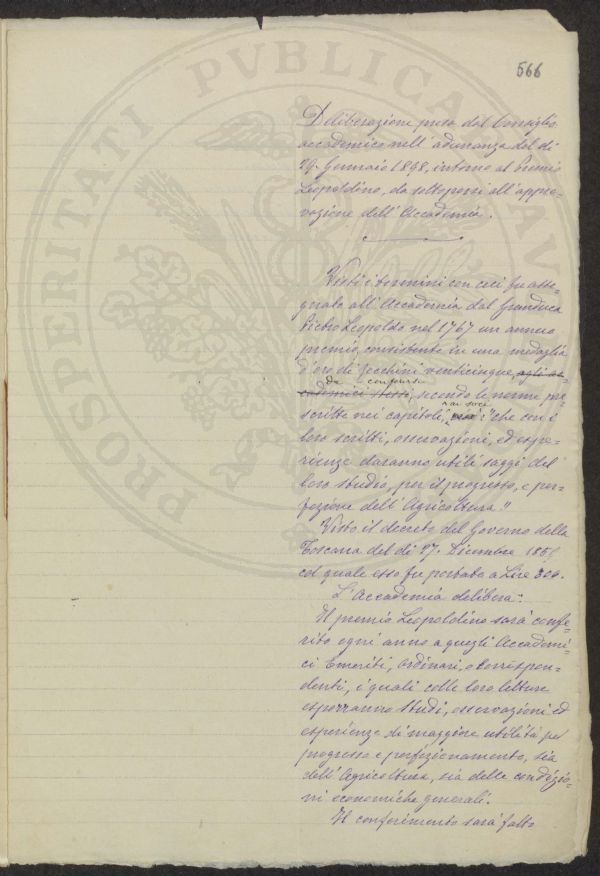 566
PROSPERITATI PVBLICAE AV
Deliberazione presa dal Consiglio
accademico nell' adunanza del di
29. Gennaio 1898, intorno al Premio
Leopoldino, da sottoporsi all' appro-
vazione dell' Accademia.
Visti i termini con cui fu asse-
gnato all' Accademia dal Granduca
Pietro Leopoldo nel 1767 un annuo
premio, consistente in una medaglia
d'oro di Zecchini venticinque, agli ac-
da conferirsi
cademici stessi, secondo le norme pre-
ai soci
scritte nei capitoli, : "che con i
loro scritti, osservazioni, ed espe-
rienze daranno utili saggi del
loro studio, per il progresso, e per-
fezione dell' Agricoltura."
Visto il decreto del Governo della
Toscana del di 27. Dicembre
col quale esso fu portato a Lire 300.
L' Accademia delibera:
Il premio Leopoldino sarà confe-
rito ogni anno a quegli Accademi-
ci Emeriti, Ordinari, o Correspon-
denti, i quali colle loro letture
esporranno studi, osservazioni ed
esperienze di maggiore utilità pel
progresso e perfezionamento, sia
dell' Agricoltura, sia delle condizio-
ni economiche generali.
Il conferimento sarà fatto